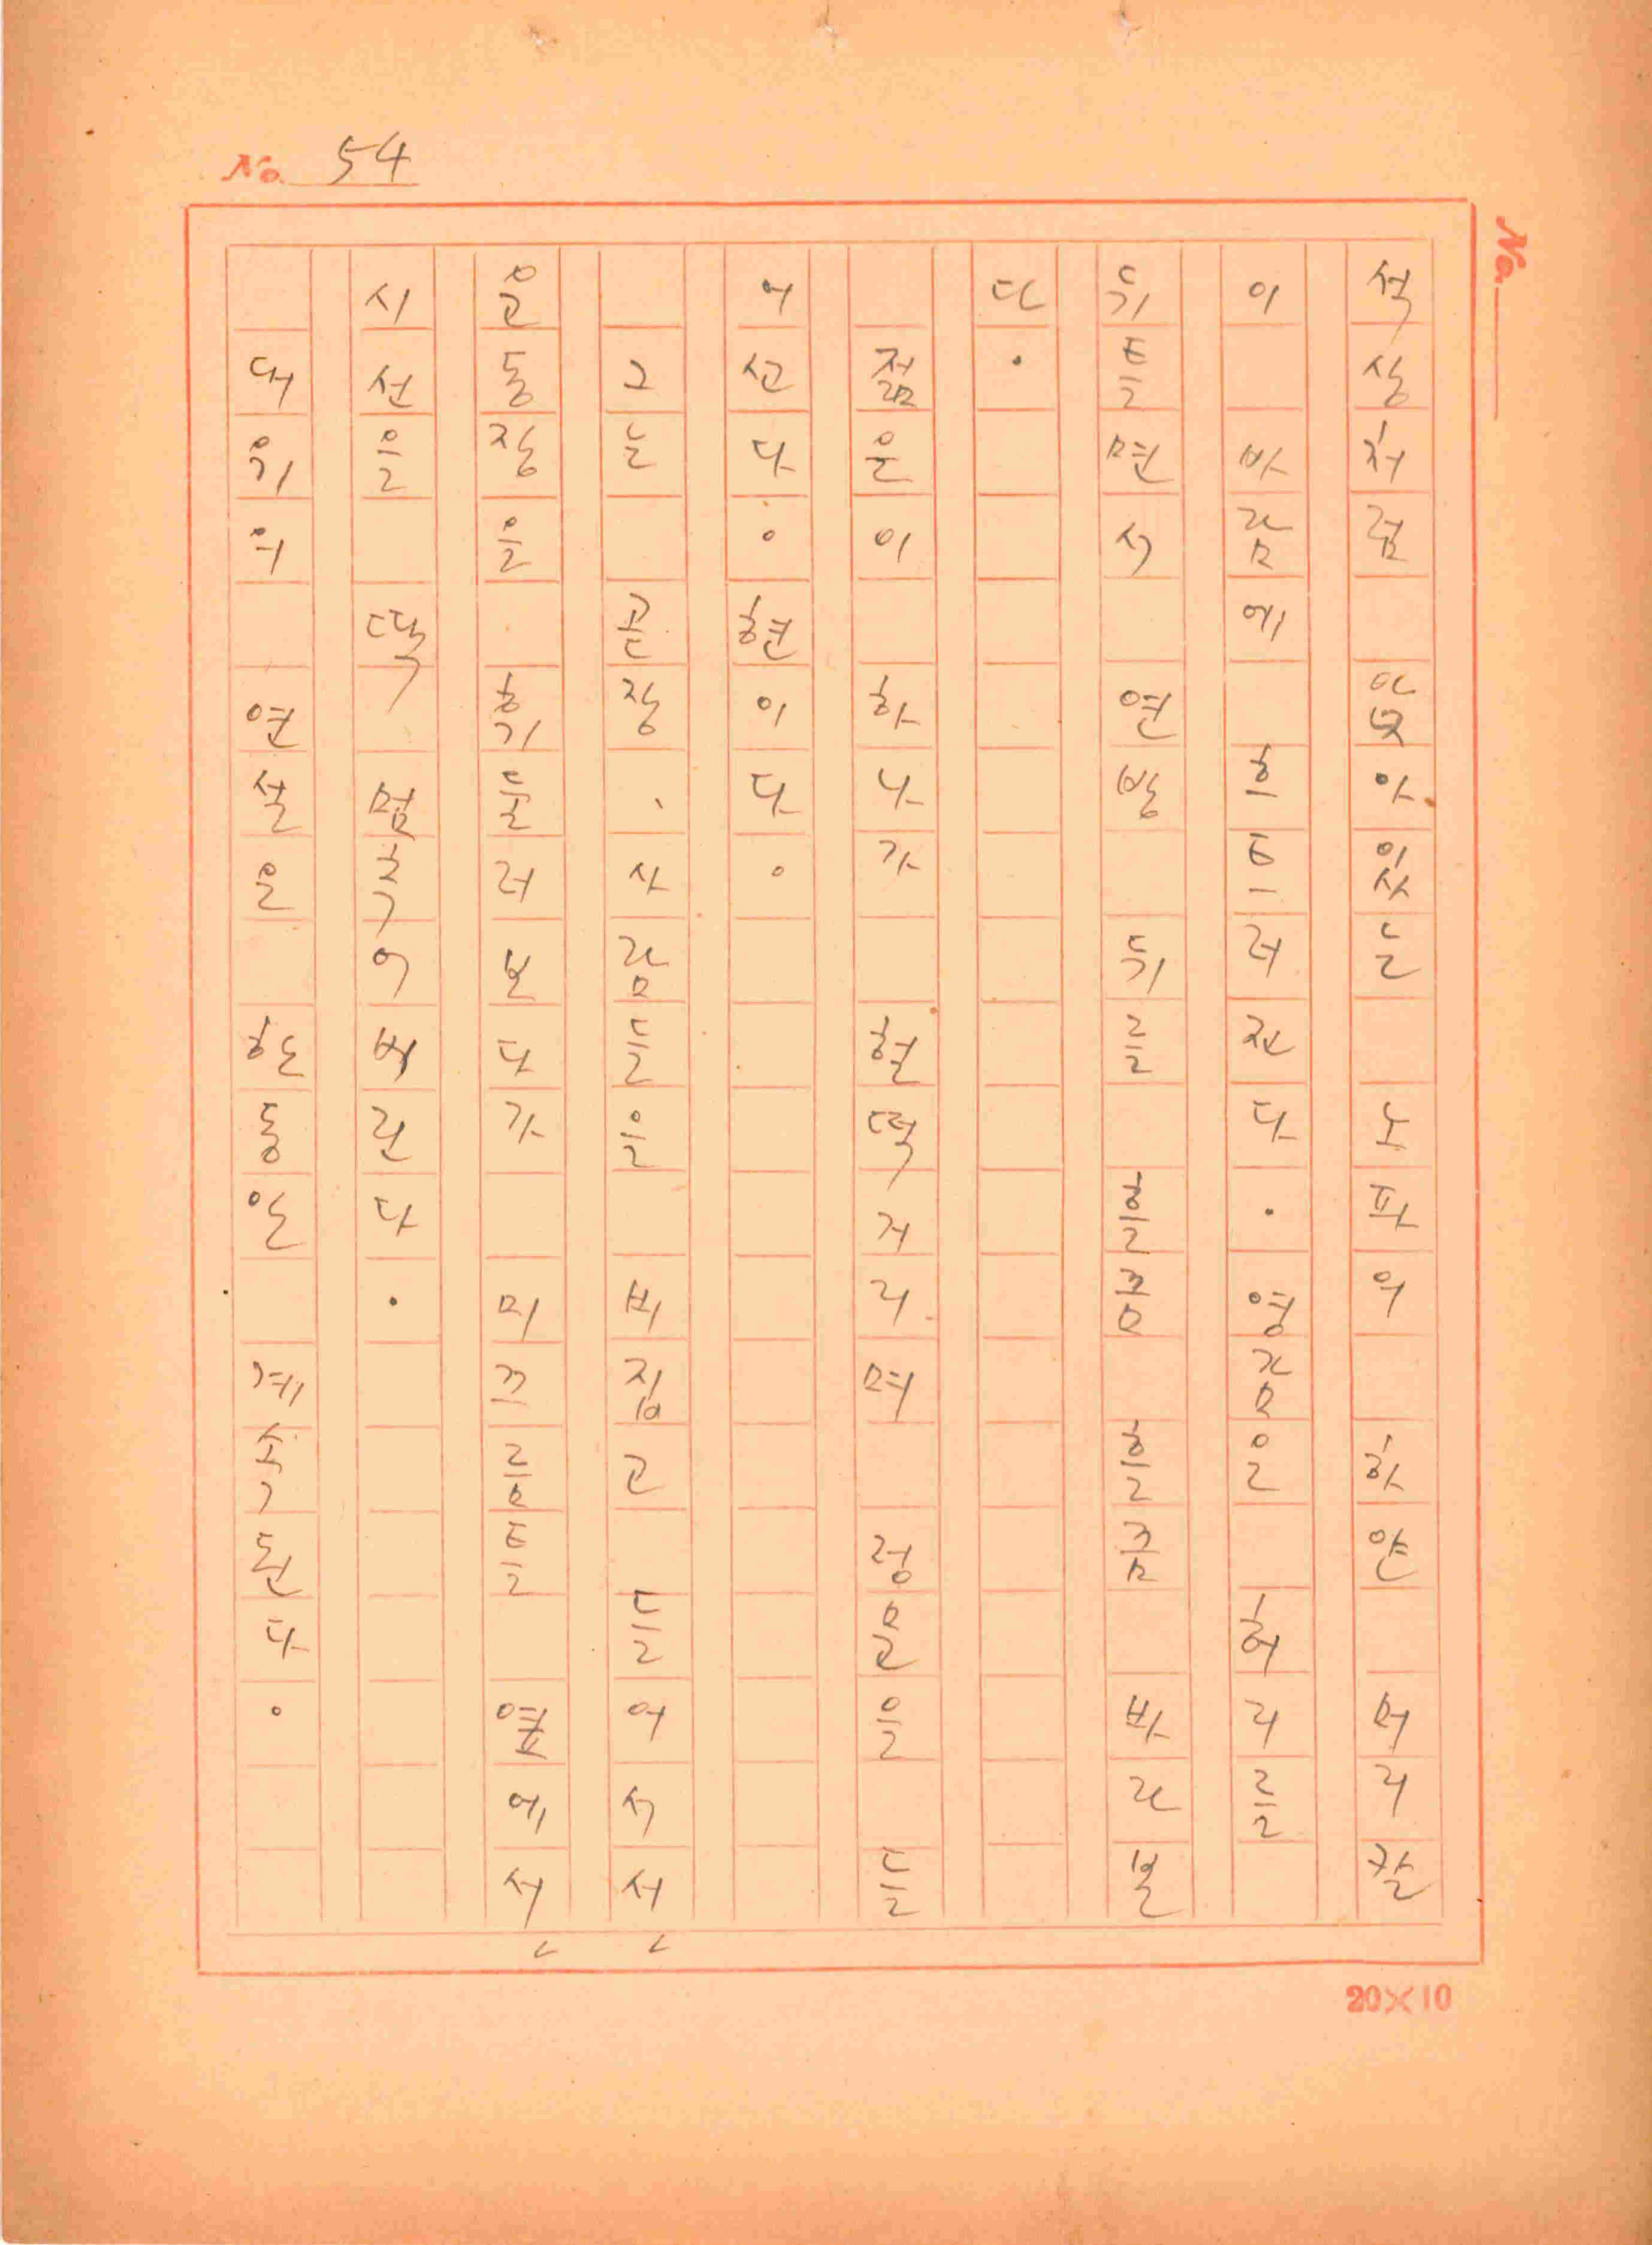 No. 54
No.
석상처럼 앉아있는 노파의 하얀 머리칼
이 바람에 흐트러진다. 영감은 허리를
뒤틀면서 연방 뒤를 흘끔 흘끔 바라본
다.
젊은이 하나가 헐떡거리며 정문을 들
어선다. 현이다.
그는 곧장, 사람들을 비집고 들어서서
운동장을 휘둘러보다가 미끄름틀 옆에서
시선을 딱 멈추어버린다.
대위의 연설은 한동안 계속된다.
20×10